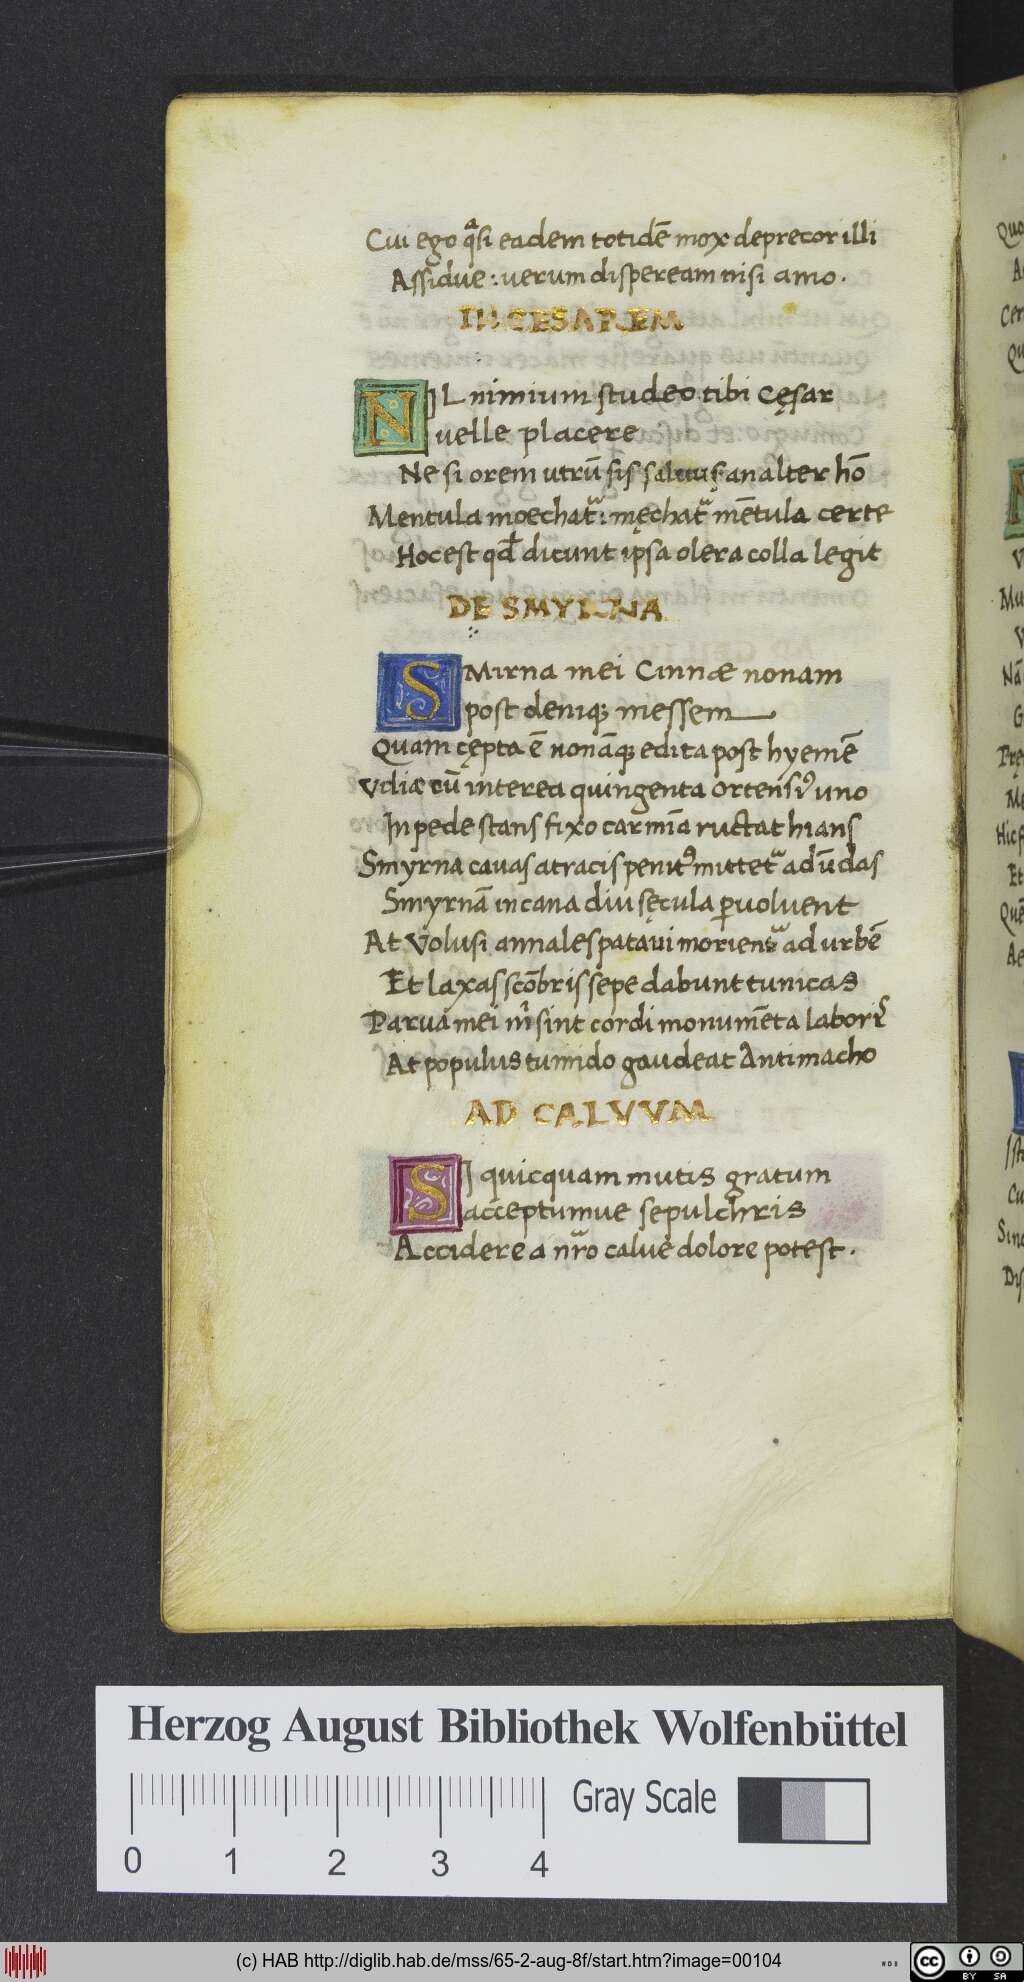 Cui ego qͣsi eadem totidē mox deprecor illi
Assidue: uerum dispeream nisi amo.
IN CESAREM
NIL nimium studeo tibi Cęsar
uelle placere
Ne si orem utrū sis saluus an alter hō
Mentula moechat᷑: męchat᷑ mētula certe
Hoc est qđ dicunt ipsa olera colla legit
DE SMYRNA
SMirna mei Cinnæ nonam
post deniq; messem
Quam cępta ē nonāq; edita post hyemē
Vdiæ cū interea quingenta ortensiꝰ uno
In pede stans fixo carmīa ructat hians
Smyrna cauas atracis penitꝰ mittet᷑ ad ūdas
Smyrnā incana diu sęcula ꝑuoluent
At Volusi annales pataui morient᷑ ad urbē
Et laxas scōbris sepe dabunt tunicas
Parua mei m̄ sint cordi monumēta laboris
At populus tumido gaudeat Antimacho
AD CALVVM
SI quicquam mutis gratum
acceptumue sepulchris
Accidere a nr̄o calue dolore potest.
Herzog August Bibliothek Wolfenbüttel
0 1 2 3 4
Gray Scale
(c) HAB http://diglib.hab.de/mss/65-2-aug-8f/start.htm?image=00104
cc BY SA